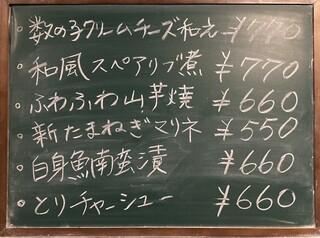 ・数の子クリームチーズ和え ¥770
・和風スペアリブ煮 ¥770
・ふわふわ山芋焼 ¥660
・新たまねぎマリネ ¥550
・白身魚南蛮漬 ¥660
・とりチャーシュー ¥660